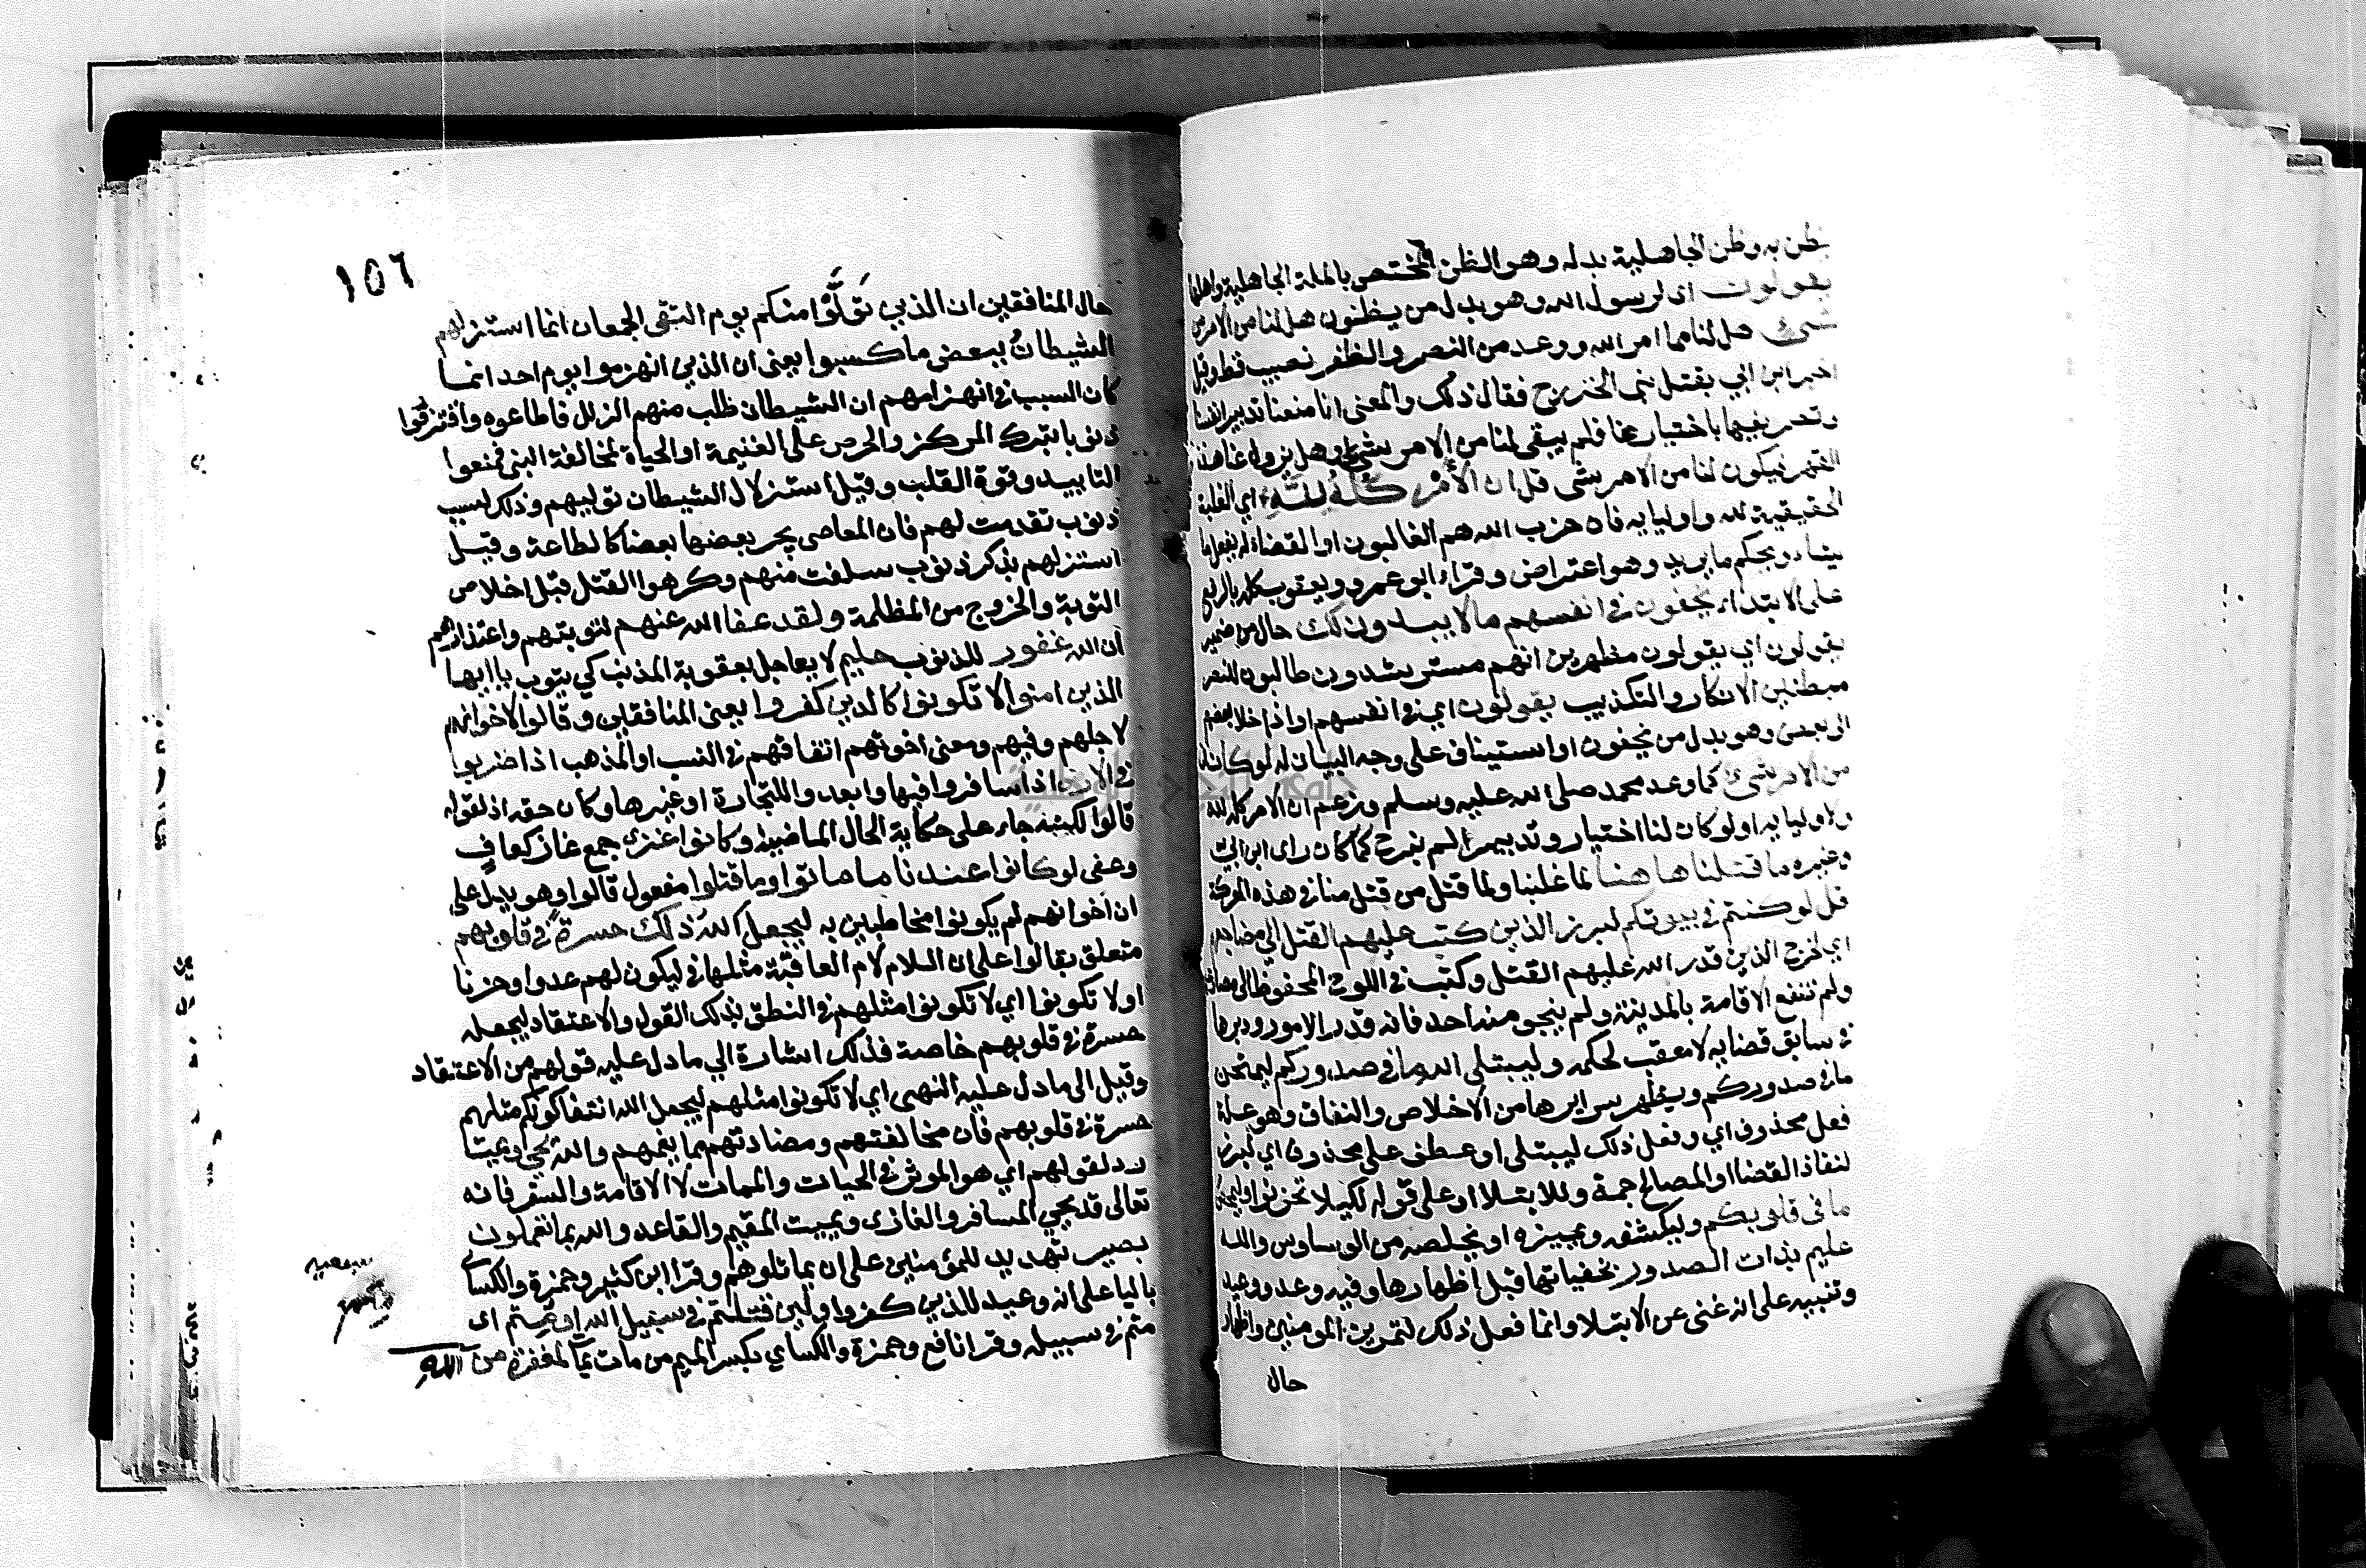 يظن به وظن الجاهلية بدله وهو الظن المختص بالملة الجاهلية واهلها
يقولون اى لرسول الله وهو بدل من يظنون هل لنا من الامر من
شئ هل لنا مما امر الله ووعد من النصر والظفر نصيب قط وقيل
اخبر ابن ابي بقتل بنى الخزرج فقال ذلك والمعنى انا منعنا تدبير انفسنا
وتصريفها باختيارنا فلم يبقى لنا من الامر شئ او هل يزول عنا هذا
القهر فيكون لنا من الامر شى قل ان الأمر كله لله اي الغلبة
الحقيقية لله واوليايه فان حزب الله هم الغالبون او القضاء له يفعل ما
يشاء ويحكم ما يريد وهو اعتراض وقراء ابو عمرو ويعقوب كله بالرفع
على الابتداء يخفون في انفسهم ما لا يبدون لك حال من ضمير
يقولون اي يقولون مظهرين انهم مسترشدون طالبون للنصر
مبطنين الانكار والتكذيب يقولون اي في انفسهم او اذا خلا بعضهم
الى بعض وهو بدل من يخفون او استيناف على وجه البيان له لو كان لنا
من الامر شئ كما وعد محمد صلى الله عليه وسلم وزعم ان الامر كله لله
ولاوليايه او لو كان لنا اختيار وتدبير لم نبرح كما كان راى ابن ابي
وغيره ما قتلنا هاهنا لما غلبنا ولما قتل من قتل منا في هذه المعركة
قل لو كنتم في بيوتكم لبرز الذين كتب عليهم القتل الى مضاجعهم
اي لخرج الذين قدر الله عليهم القتل وكتب في اللوح المحفوظ الى مصارعهم
ولم تنفع الاقامة بالمدينة ولم ينجو منه احد فانه قدر الامور ودبرها
في سابق قضايه لا معقب لحكمه وليبتلى الله ما في صدوركم ليمتحن
ما في صدوركم ويظهر سرايرها من الاخلاص والنفاق وهو علة
فعل محذوف اي وفعل ذلك ليبتلى او عطف على محذوف اي لبرز
لنفاذ القضا او المصالح جمة وللابتلا او على قوله لكيلا تحزنوا وليمحص
ما في قلوبكم وليكشفه ويميزه او يخلصه من الوساوس والله
عليم بذات الصدور بخفياتها قبل اظهارها وفيه وعد ووعيد
وتنبيه على انه غنى عن الابتلا وانما فعل ذلك لتمرين المومنين واظهار
حال
١٥٦
حال المنافقين ان الذين تَوَلَّوْا منكم يوم التقى الجمعان انما استزلهم
الشيطانُ ببعض ما كسبوا يعنى ان الذين انهزموا يوم احد انما
كان السبب في انهزامهم ان الشيطان طلب منهم الزلل فاطاعوه واقترفوا
ذنوبا بترك المركز والحرص على الغنيمة او الحياة لمخالفة النبي فمنعوا
التاييد وقوة القلب وقيل استزلال الشيطان توليهم وذلك بسبب
ذنوب تقدمت لهم فان المعاصى يجر بعضها بعضا كالطاعة وقيل
استزلهم بذكر ذنوب سلفت منهم وكرهوا القتل قبل اخلاص
التوبة والخروج من المظلمة ولقد عفا الله عنهم لتوبتهم واعتذارهم
ان الله غفور للذنوب حليم لا يعاجل بعقوبة المذنب كي يتوب يا ايها
الذين امنوا لا تكونوا كالدين كفروا يعنى المنافقين وقالوا لاخوانهم
لاجلهم وفيهم ومعنى اخوتهم اتفاقهم في النسب او المذهب اذا ضربوا
في الارض اذا سافروا فيها وابعدوا للتجارة او غيرها وكان حقه اذ لقوله
قالوا لكنه جاء على حكاية الحال الماضية او كانوا غزى جمع غاز كعافٍ
وعفى لو كانوا عندنا ما ماتوا وما قتلوا مفعول قالوا وهو يدل على
ان اخوانهم لم يكونوا مخاطبين به ليجعل الله ذلك حسرةً في قلوبهم
متعلق بقالوا على ان السلام لام العاقبة مثلها في ليكون لهم عدوا وحزنا
او لا تكونوا اي لا تكونوا مثلهم في النطق بذلك القول والاعتقاد ليجعله
حسرة في قلوبهم خاصة فذلك اشارة الي ما دل عليه قولهم من الاعتقاد
وقيل الى ما دل عليه النهى اي لا تكونوا مثلهم ليجعل الله انتفا كونكم مثلهم
حسرة في قلوبهم فان مخالفتهم ومضادتهم مما يغمهم والله يحي ويميت
رد لقولهم اي هو الموثر في الحيات والممات لا الاقامة والسفر فانه
تعالى قد يحيي المسافر والغازى ويميت المقيم والقاعد والله بما تعملون
بصير تهديد للمؤمنين على ان يماثلوهم وقرا ابن كثير وحمزة والكساي
باليا على انه وعيد للذين كفروا ولين قتلتم في سبيل الله او متم اى
متم في سبيله وقرا نافع وحمزة والكساي بكسر الميم من مات يمات لمغفرة من الله